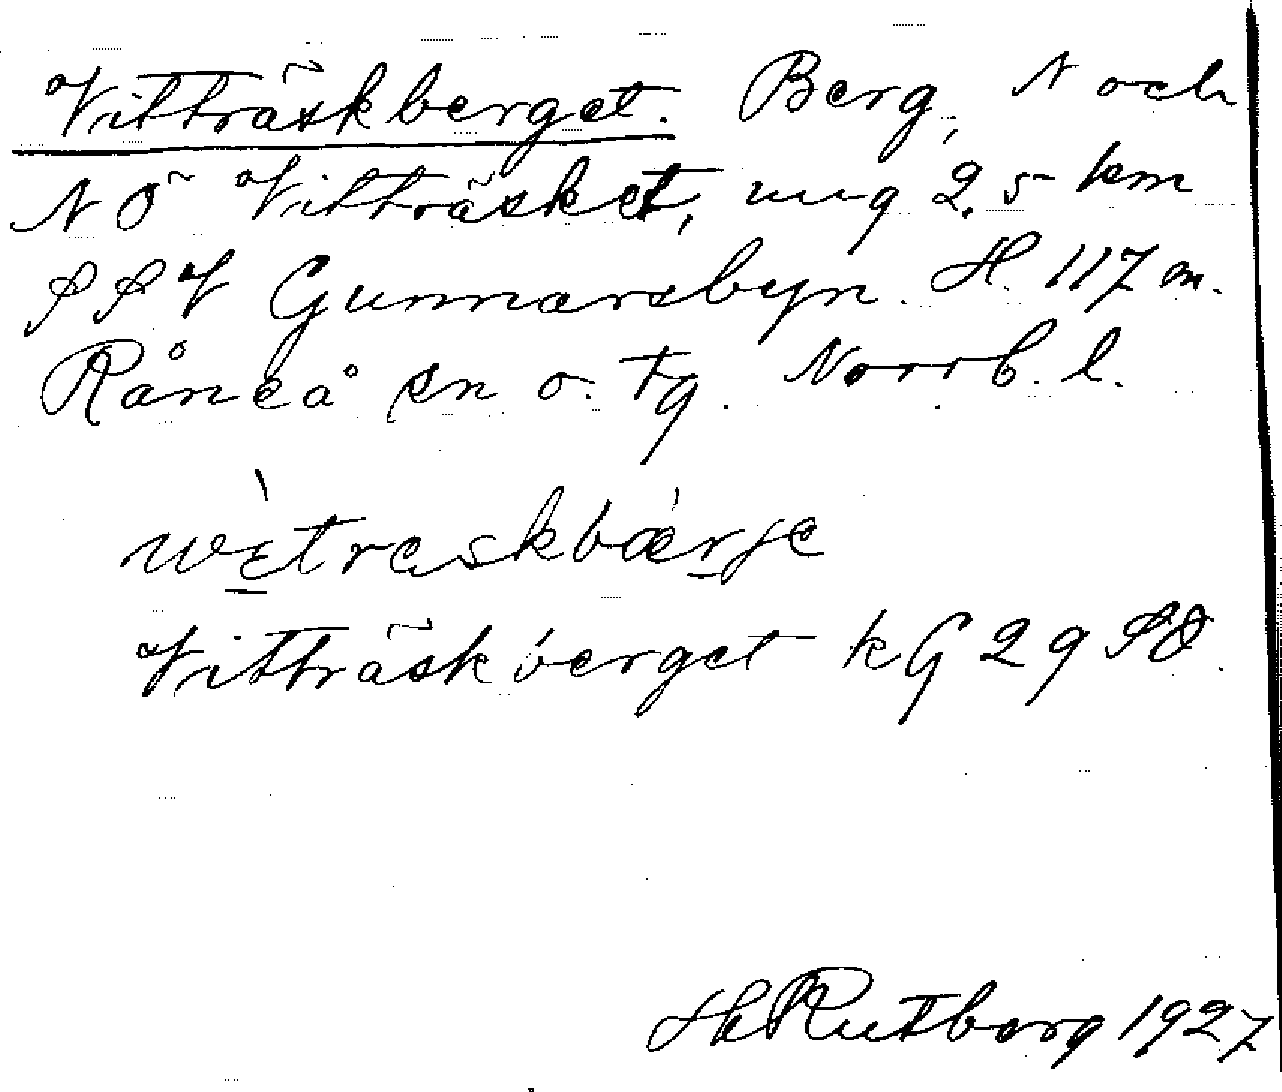 Vitträskberget. Berg, N och
NÖ Vitträsket, ung 2,5 km
SSV Gunnarsbyn. H. 117 m.
Råneå sn o. tg. Norrb. l.
wètraskbærje
Vitträskberget kG 29 SO.
Rutborg 1927